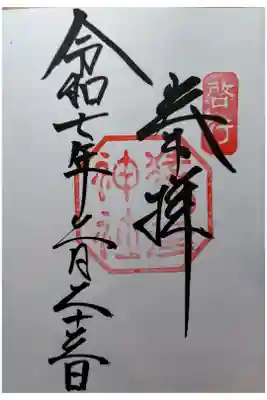 啓行
奉拝
神社
令和七年六月二十三日